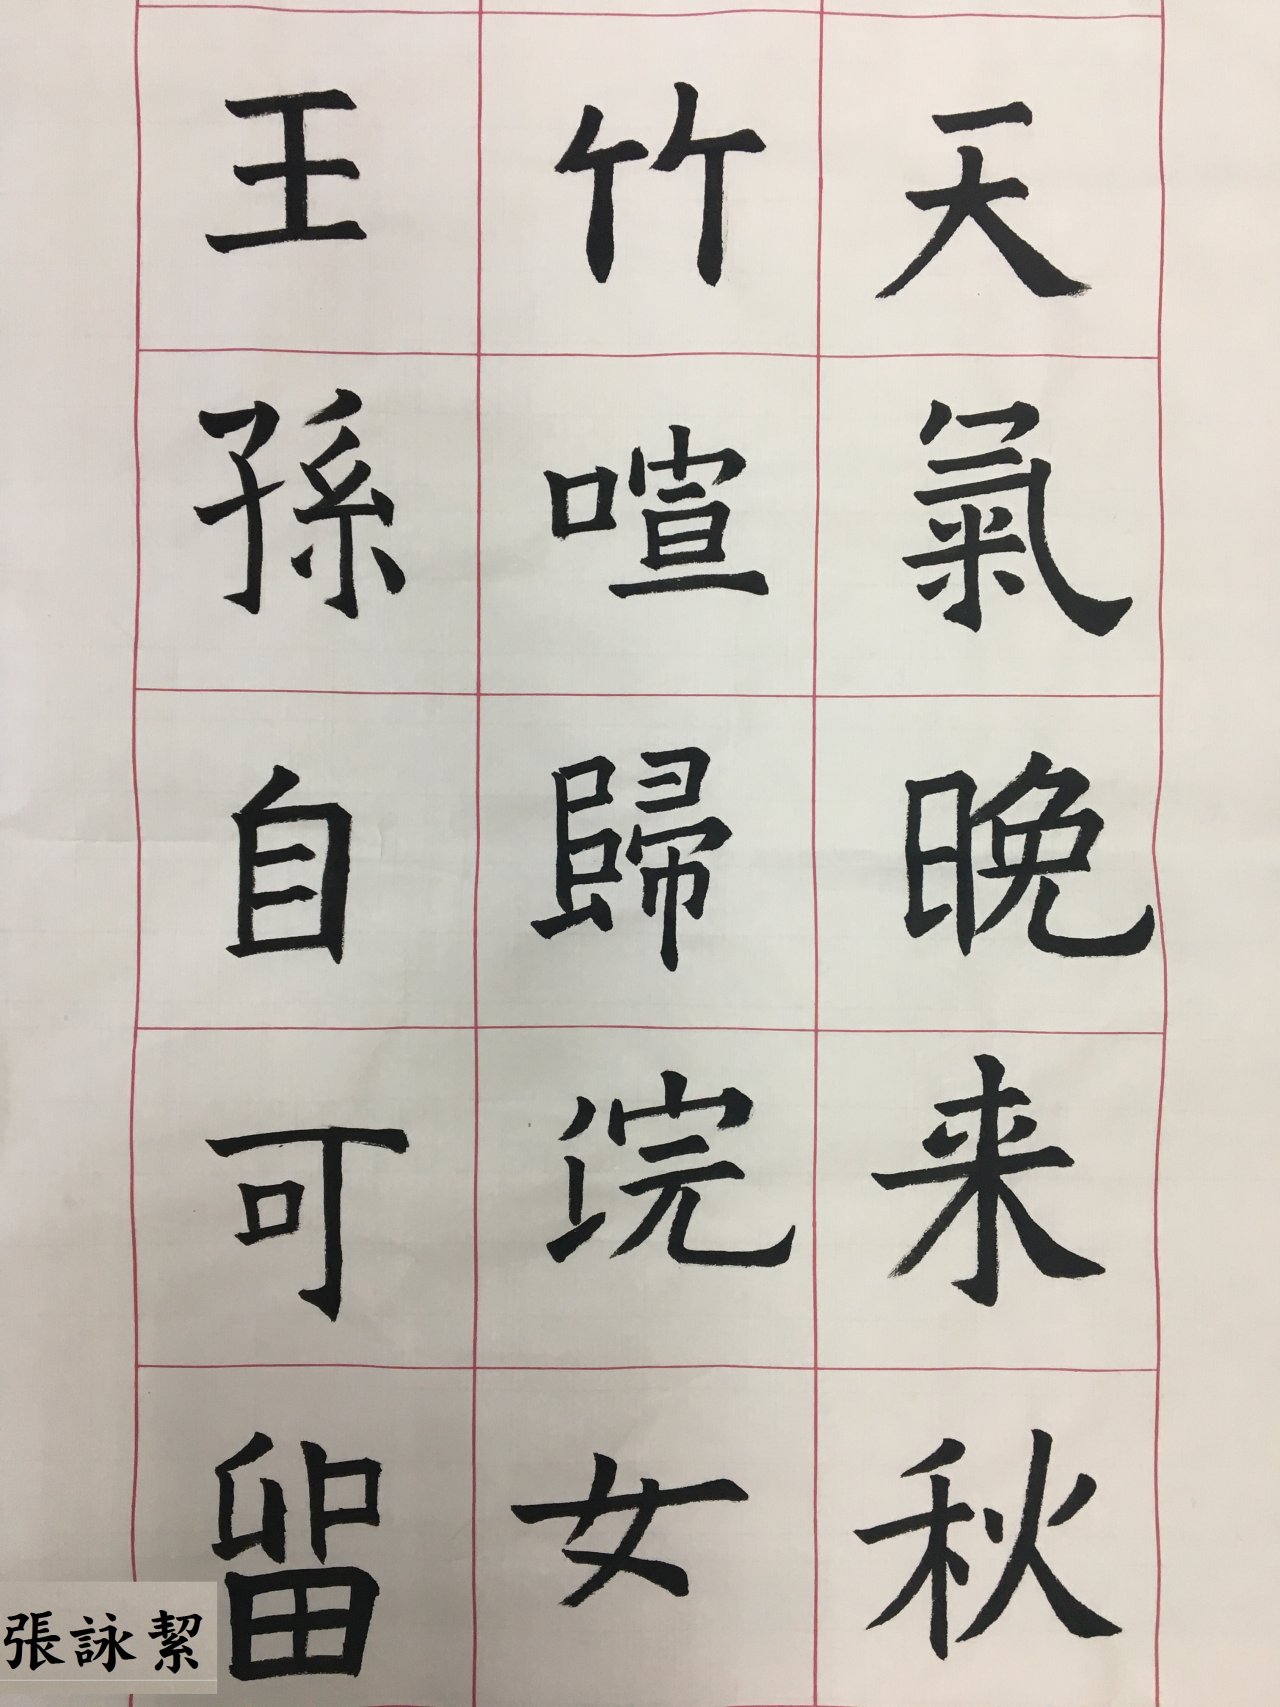 天氣晚来秋
竹喧歸浣女
王孫自可留
張詠絜